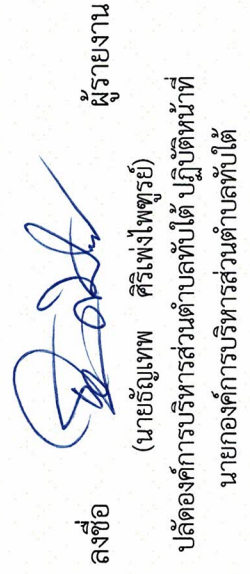 ลงชื่อ ผู้รายงาน
(นายธัญเทพ ศิริเพ่งไพฑูรย์)
ปลัดองค์การบริหารส่วนตำบลทับใต้ ปฏิบัติหน้าที่
นายกองค์การบริหารส่วนตำบลทับใต้